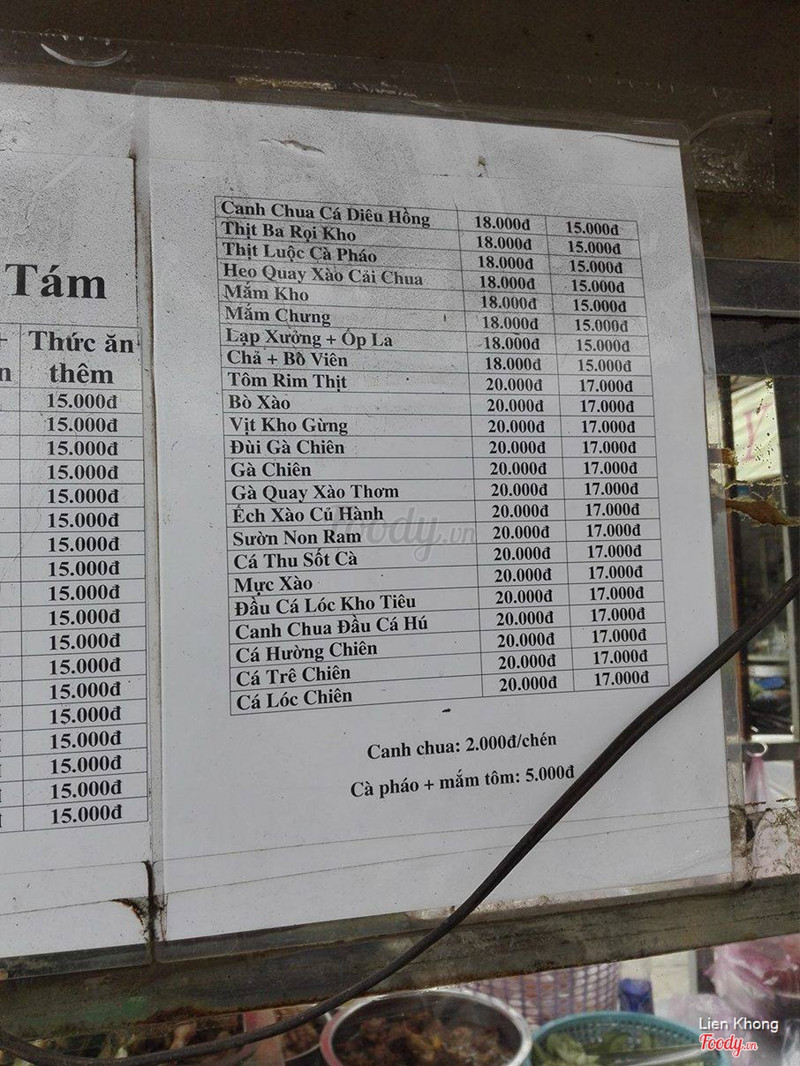 Tám
+ Thức ăn
n thêm
15.000đ
15.000đ
15.000đ
15.000đ
15.000đ
15.000đ
15.000đ
15.000đ
15.000đ
15.000đ
15.000đ
15.000đ
15.000đ
15.000đ
15.000đ
15.000đ
15.000đ
15.000đ
Canh Chua Cá Diêu Hồng 18.000đ 15.000đ
Thịt Ba Rọi Kho 18.000đ 15.000đ
Thịt Luộc Cà Pháo 18.000đ 15.000đ
Heo Quay Xào Cải Chua 18.000đ 15.000đ
Mắm Kho 18.000đ 15.000đ
Mắm Chưng 18.000đ 15.000đ
Lạp Xưởng + Ốp La 18.000đ 15.000đ
Chả + Bò Viên 18.000đ 15.000đ
Tôm Rim Thịt 20.000đ 17.000đ
Bò Xào 20.000đ 17.000đ
Vịt Kho Gừng 20.000đ 17.000đ
Đùi Gà Chiên 20.000đ 17.000đ
Gà Chiên 20.000đ 17.000đ
Gà Quay Xào Thơm 20.000đ 17.000đ
Ếch Xào Củ Hành 20.000đ 17.000đ
Sườn Non Ram 20.000đ 17.000đ
Cá Thu Sốt Cà 20.000đ 17.000đ
Mực Xào 20.000đ 17.000đ
Đầu Cá Lóc Kho Tiêu 20.000đ 17.000đ
Canh Chua Đầu Cá Hú 20.000đ 17.000đ
Cá Hường Chiên 20.000đ 17.000đ
Cá Trê Chiên 20.000đ 17.000đ
Cá Lóc Chiên 20.000đ 17.000đ
Canh chua: 2.000đ/chén
Cà pháo + mắm tôm: 5.000đ
foody.vn
Lien Khong
Foody.vn